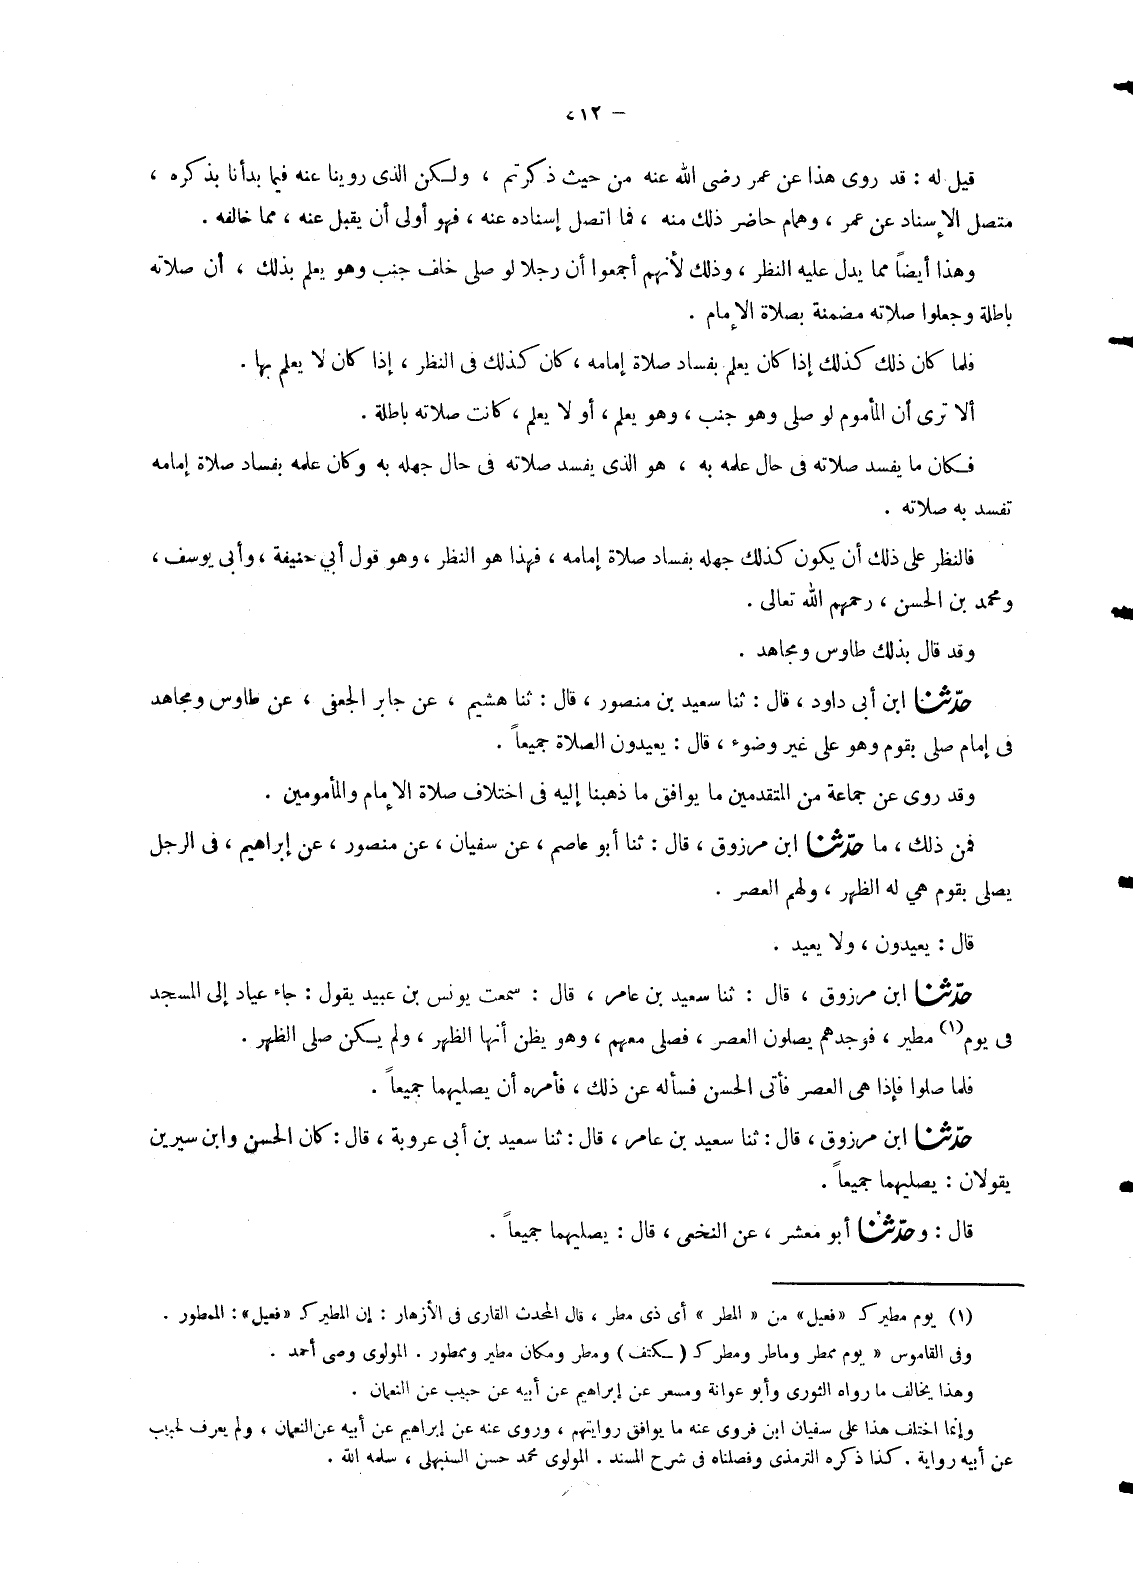 — ٤١٢
قيل له : قد روى هذا عن عمر رضى الله عنه من حيث ذكرتم ، ولكن الذى روينا عنه فيما بدأنا بذكره ،
متصل الإسناد عن عمر ، وهمام حاضر ذلك منه ، فما اتصل إسناده عنه ، فهو أولى أن يقبل عنه ، مما خالفه .
وهذا أيضاً مما يدل عليه النظر ، وذلك لأنهم أجمعوا أن رجلا لو صلى خلف جنب وهو يعلم بذلك ، أن صلاته
باطلة وجعلوا صلاته مضمنة بصلاة الإمام .
فلما كان ذلك كذلك إذا كان يعلم بفساد صلاة إمامه ، كان كذلك فى النظر ، إذا كان لا يعلم بها .
ألا ترى أن المأموم لو صلى وهو جنب ، وهو يعلم ، أو لا يعلم ، كانت صلاته باطلة .
فكان ما يفسد صلاته فى حال علمه به ، هو الذى يفسد صلاته فى حال جهله به وكان علمه بفساد صلاة إمامه
تفسد به صلاته .
فالنظر على ذلك أن يكون كذلك جهله بفساد صلاة إمامه ، فهذا هو النظر ، وهو قول أبي حنيفة ، وأبى يوسف ،
ومحمد بن الحسن ، رحمهم الله تعالى .
وقد قال بذلك طاوس ومجاهد .
حدّثنا ابن أبى داود ، قال : ثنا سعيد بن منصور ، قال : ثنا هشيم ، عن جابر الجعفى ، عن طاوس ومجاهد
فى إمام صلى بقوم وهو على غير وضوء ، قال : يعيدون الصلاة جميعاً .
وقد روى عن جماعة من المتقدمين ما يوافق ما ذهبنا إليه فى اختلاف صلاة الإمام والمأمومين .
فمن ذلك ، ما حدّثنا ابن مرزوق ، قال : ثنا أبو عاصم ، عن سفيان ، عن منصور ، عن إبراهيم ، فى الرجل
يصلى بقوم هي له الظهر ، ولهم العصر .
قال : يعيدون ، ولا يعيد .
حدّثنا ابن مرزوق ، قال : ثنا سعيد بن عامر ، قال : سمعت يونس بن عبيد يقول : جاء عياد إلى المسجد
فى يوم(١) مطير ، فوجدهم يصلون العصر ، فصلى معهم ، وهو يظن أنها الظهر ، ولم يكن صلى الظهر .
فلما صلوا فإذا هى العصر فأتى الحسن فسأله عن ذلك ، فأمره أن يصليهما جميعاً .
حدّثنا ابن مرزوق ، قال : ثنا سعيد بن عامر ، قال : ثنا سعيد بن أبى عروبة ، قال : كان الحسن وابن سيرين
يقولان : يصليهما جميعاً .
قال : وحدّثنا أبو معشر ، عن النخعى ، قال : يصليهما جميعاً .
(١) يوم مطير كـ «فعيل» من « المطر » أى ذى مطر ، قال المحدث القارى فى الأزهار : إن المطير كـ «فعيل» : الممطور .
وفى القاموس « يوم ممطر وماطر ومطر كـ (ككتف) ومطر ومكان مطير وممطور . المولوى وصى أحمد .
وهذا يخالف ما رواه الثورى وأبو عوانة ومسعر عن إبراهيم عن أبيه عن حبيب عن النعمان .
وإنما اختلف هذا على سفيان ابن فروى عنه ما يوافق روايتهم ، وروى عنه عن إبراهيم عن أبيه عن النعمان ، ولم يعرف لحبيب
عن أبيه رواية . كذا ذكره الترمذى وفصلناه فى شرح المسند . المولوى محمد حسن السنبهلى ، سلمه الله .